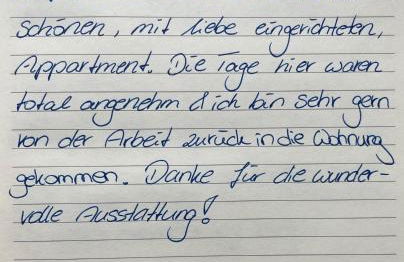 schönen, mit Liebe eingerichteten,
Appartment. Die Tage hier waren
total angenehm & ich bin sehr gern
von der Arbeit zurück in die Wohnung
gekommen. Danke für die wunder-
volle Ausstattung!